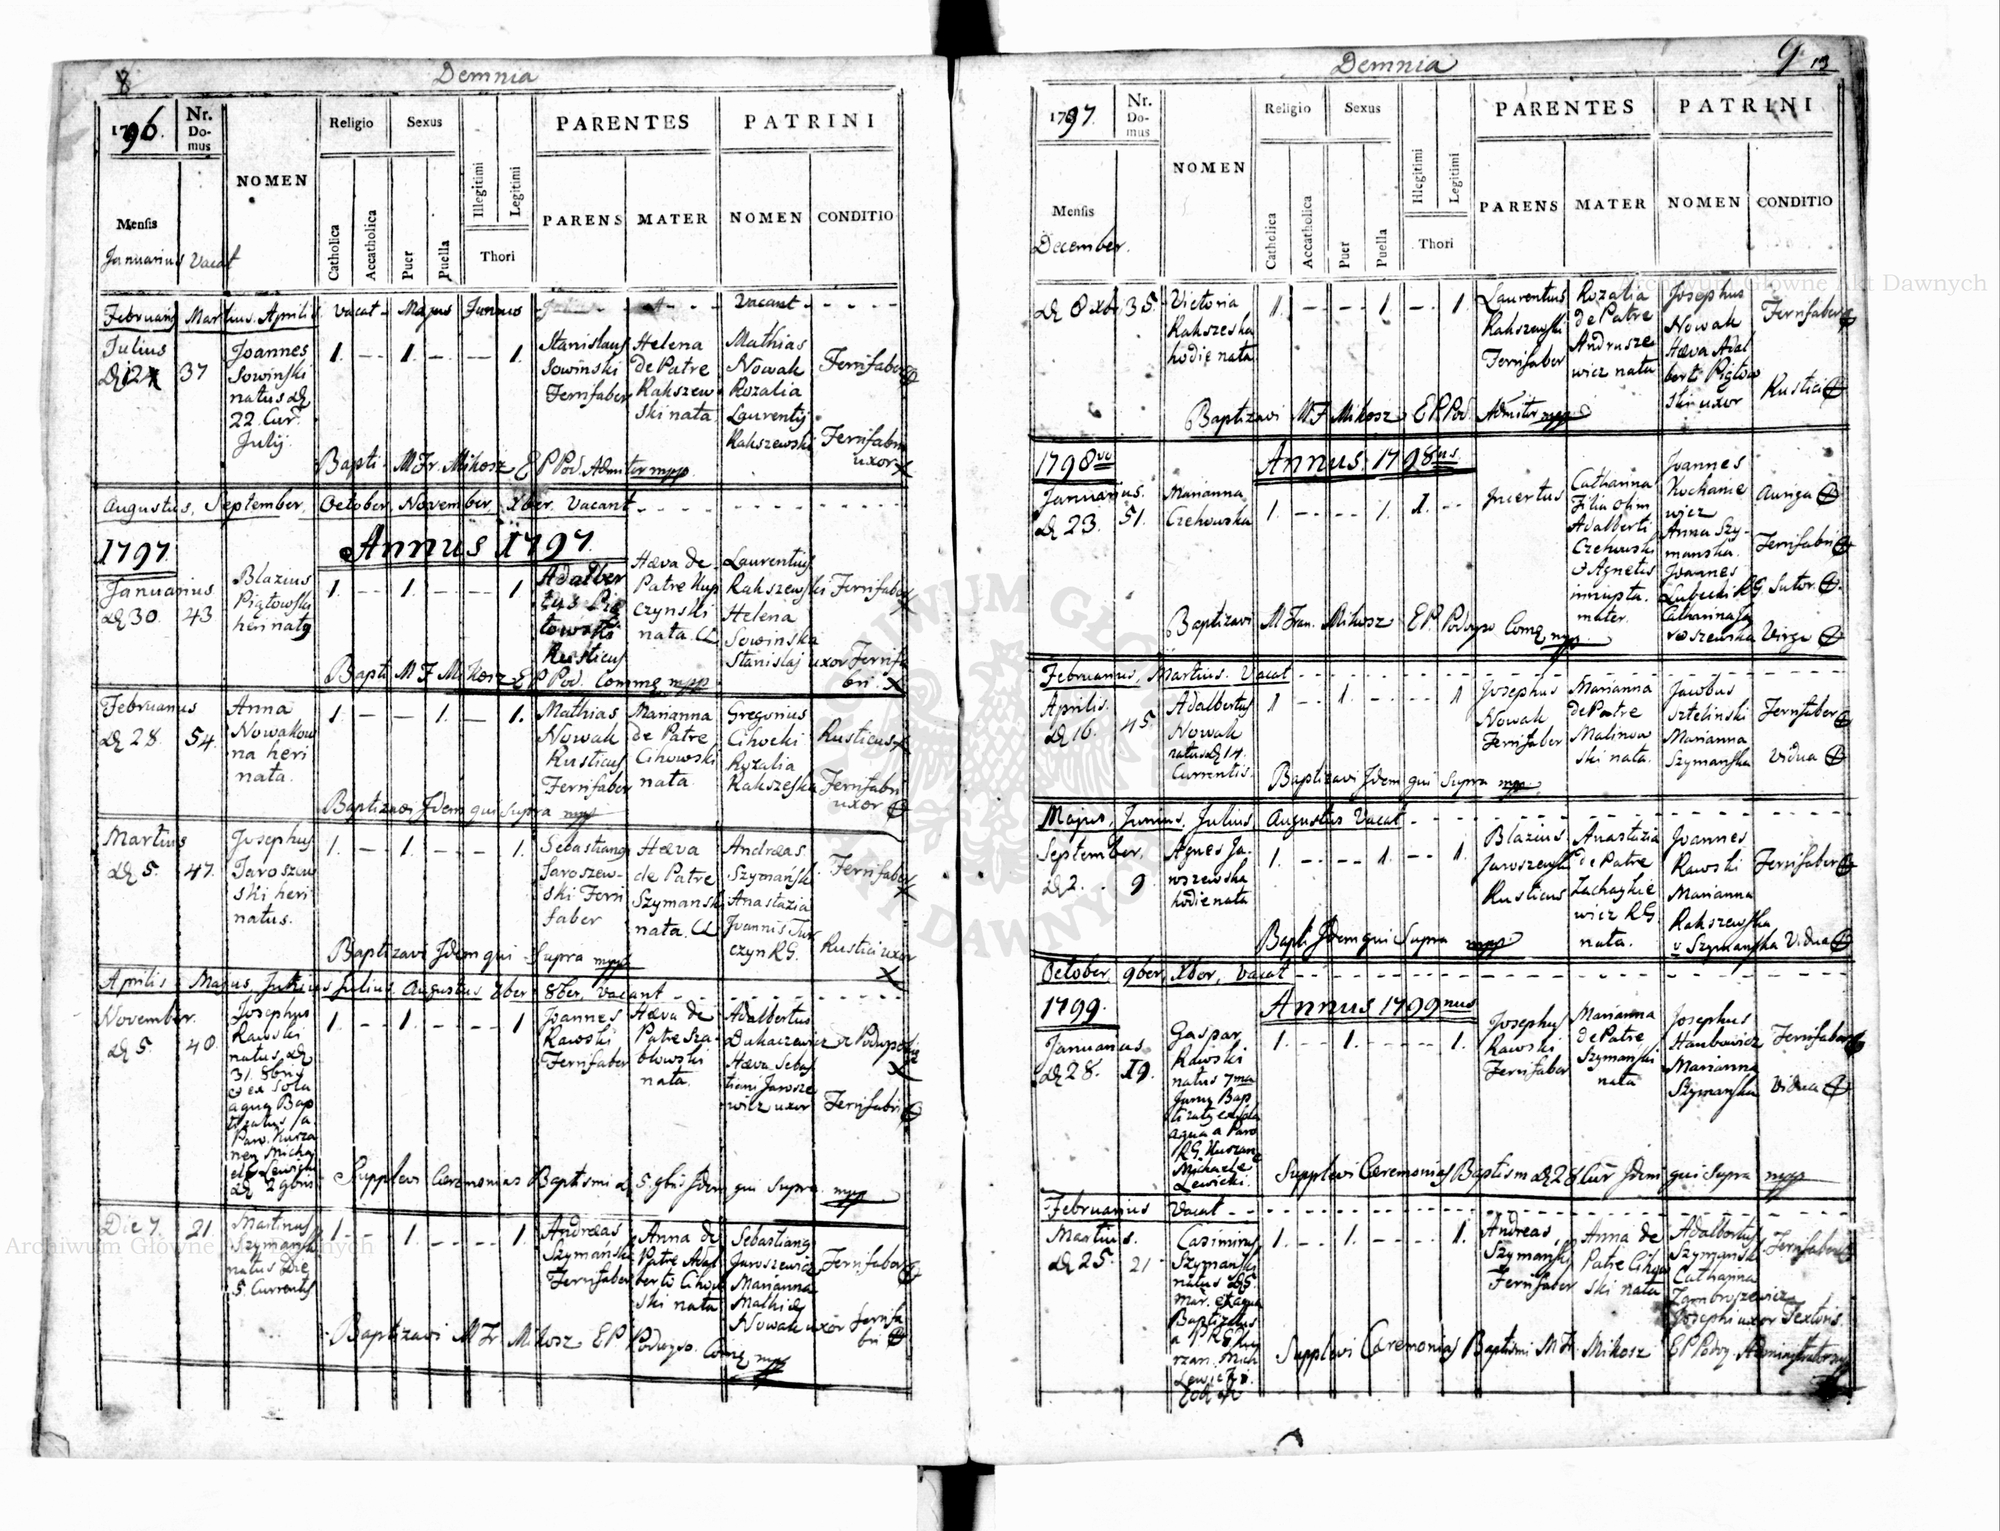 8
Demnia
1796.
Nr. Do-mus
NOMEN
Religio
Sexus
PARENTES
PATRINI
Mensis
Catholica
Accatholica
Puer
Puella
Illegitimi
Legitimi
Thori
PARENS
MATER
NOMEN
CONDITIO
Januarius Vacat
Februarius Martius. Aprilis. Vacat - Majus Junius Vacant - - - - - -
Julius
37
Joannes
Sowinski
natus
22 Cur.
Julij.
1. - - 1. - - 1.
Stanislaus
Sowinski
Ferrifaber
Helena
de Patre
Rakszew-
ski nata.
Mathias
Nowak
Rozalia
Laurentij
Rakszewski
Ferrifaber
Ferrifabri
uxor
Bapti. M Fr. Mikosz E P Pod. Admtor mpp
Augustus, September, October, November, Xber. Vacant - - - - - - - -
1797.
Annus 1797.
Januarius
30.
43
Blazius
Piątowski
heri natus
1. - - 1. - - 1
Adalber
tus Pią
towski
Rusticus
Hæva de
Patre Kup
czynski
nata.
Laurentius
Rakszewski
Helena
Sowinska
Stanislaj uxor
Ferrifaber
Ferrifa
bri.
Bapti M F Mikosz E P Pod. Comq mpp
Februarius
28.
54.
Anna
Nowakow
na heri
nata.
1. - - - 1. - 1.
Mathias
Nowak
Rusticus
Ferrifaber
Marianna
de Patre
Cihowski
nata.
Gregorius
Cihocki
Rozalia
Rakszeska
Rusticus
Ferrifabri
uxor
Baptizavi Idem qui Supra mpp
Martius
5.
47.
Josephus
Jaroszew
ski heri
natus.
1. - - 1. - - 1.
Sebastianus
Jaroszew-
ski Ferri
faber
Hæva
de Patre
Szymansk
nata.
Andræas
Szymański
Anastazia
Joannis Tur
czyn RG.
Ferrifaber
Rustici uxor
Baptizavi Idem qui Supra mpp
Aprilis Majus, Junius, Julius. Augustus 7ber. 8ber. Vacant - - - - - - - -
November.
5.
40.
Josephus
Rawski
natus
31. 8bris
ex Sola
aqua Bap
tizatus a
Paro. Kurza
nen Micha
ele Lewicki
2 9bris
1. - - 1. - - 1.
Joannes
Rawski
Ferrifaber
Hæva de
Patre Sza-
blowski
nata.
Adalbertus
Hæva Sebas
tiani Jarosze
wicz uxor
Ferrifabri
Supplevi Cæremonias Baptismi 5. 9bris Idem qui Supra. mpp
Die 7.
21.
Martinus
Szymanski
natus Die
5. Currentis
1. - - 1. - - 1.
Andræas
Szymanski
Ferrifaber
Anna de
Patre Adal
berto Cihow
ski nata
Sebastianus
Jaroszewicz
Marianna
Mathiæ
Nowak uxor
Ferrifaber
Ferrifa
bri
Baptizavi M Fr. Mikosz E P. Podwyso. Comq mpp
9. 13
Demnia
1797.
Nr. Do-mus
NOMEN
Religio
Sexus
PARENTES
PATRINI
Mensis
Catholica
Accatholica
Puer
Puella
Illegitimi
Legitimi
Thori
PARENS
MATER
NOMEN
CONDITIO
December.
8 Xbr.
35.
Victoria
Rakszeska
hodie nata
1. - - - 1 - 1.
Laurentius
Rakszewski
Ferrifaber
Rozalia
de Patre
Andrusze
wicz nata
Josephus
Nowak
Hæva Adal
berti Piątow
ski uxor
Ferrifaber
Rustici
Baptizavi M F Mikosz E P Pod Admtor mpp
1798vo
Annus 1798us.
Januarius.
23.
51.
Marianna
Czehowska
1. - - - 1. 1. - -
Incertus
Catharina
Filia olim
Adalberti
Czehowski
Agnetis
innupta.
mater.
Joannes
Kochanie
wicz
Anna Szy-
manska.
Joannes
Lubecki RG.
Catharina Ja
roszewska
Auriga
Ferrifabri
Sutor.
Virgo
Baptizavi M Fran. Mikosz E P. Podwyso Comq mpp.
Februarius, Martius. Vacat - - - - - - -
Aprilis.
16.
45.
Adalbertus
Nowak
natus 14.
Currentis.
1 - - 1. - - - 1
Josephus
Nowak
Ferrifaber
Marianna
de Patre
Malinow
ski nata.
Jacobus
Sztelinski
Marianna
Szymanska
Ferrifaber
Vidua
Baptizavi Idem qui Supra mpp.
Majus, Junius, Julius, Augustus Vacat - - - - - - - -
September.
2.
9.
Agnes Ja-
roszewska
hodie nata
1. - - - 1. - - 1.
Blazius
Jaroszewski
Rusticus
Anastazia
de Patre
Zachaykie
wicz RG
nata.
Joannes
Rawski
Marianna
Rakszewska
v Szymanska
Ferrifaber
Vidua
Bapti Idem qui Supra mpp
October, 9ber, Xber, Vacat - - - - - - -
1799.
Annus 1799nus
Januarius
28.
19.
Gaspar
Rawski
natus 7ma
Januarij Bap
tizatus ex sola
aqua a Paro
RG. Kurzan.
Michaele
Lewicki.
1. - - 1. - - - 1.
Josephus
Rawski
Ferrifaber
Marianna
de Patre
Szymanski
nata
Josephus
Marianna
Szymanska
Ferrifaber
Vidua
Supplevi Cæremonias Baptism 28 Cur Idem qui Supra mpp
Februarius Vacat - - - - - - -
Martius.
25.
21
Casimirus
Szymanski
natus 5.
Mar. ex aqua
Baptizatus
a P RG Kur
rzan. Mich
Lewicki.
1. - - 1. - - - 1.
Andreas
Szymanski
Ferrifaber
Anna de
Patre Cihow
ski nata
Adalbertus
Szymansk
Catharina
Zambrozewicz
Josephi uxor
Ferrifaber
Textoris.
Supplevi Cæremonias Baptismi M Fr. Mikosz E P Podwy. Administrator mpp
Archiwum Główne Akt Dawnych
Archiwum Główne Akt Dawnych
ARCHIWUM GŁÓWNE AKT DAWNYCH